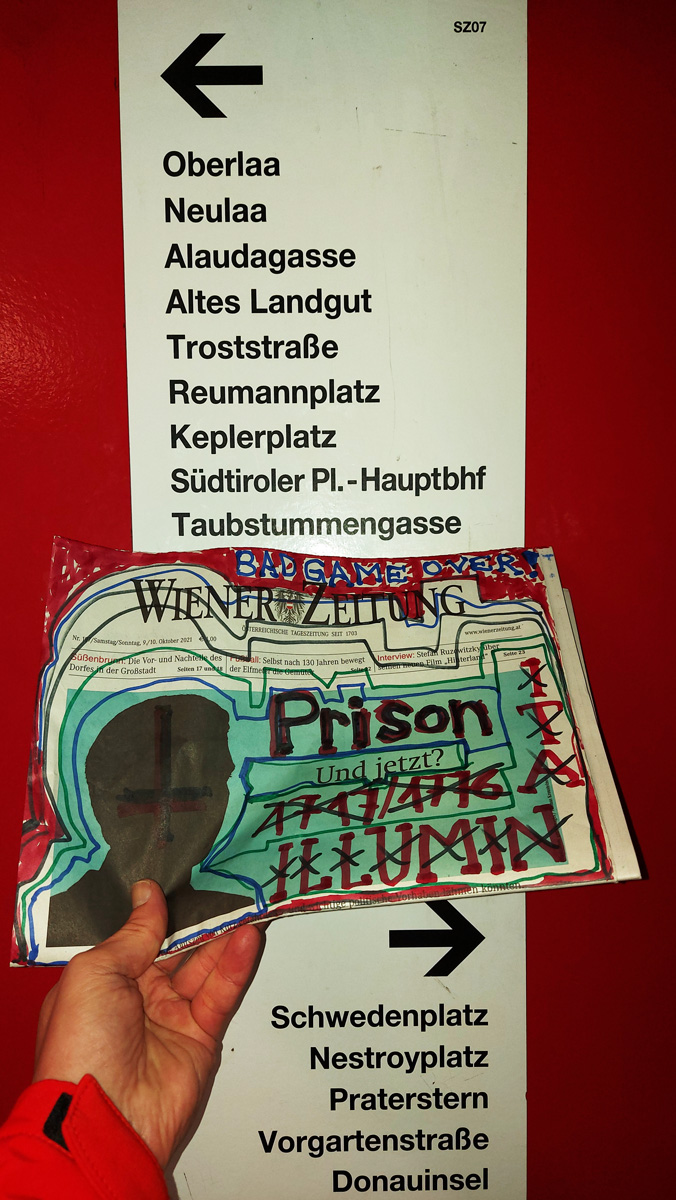 SZ07
Oberlaa
Neulaa
Alaudagasse
Altes Landgut
Troststraße
Reumannplatz
Keplerplatz
Südtiroler Pl.-Hauptbhf
Taubstummengasse
BAD GAME OVER!
WIENER ZEITUNG
ÖSTERREICHISCHE TAGESZEITUNG SEIT 1703
www.wienerzeitung.at
/Samstag/Sonntag, 9./10. Oktober 2021
Süßenbrunn: Die Vor- und Nachteile des
Dorfes in der Großstadt Seiten 17 und 18
Fussball: Selbst nach 130 Jahren bewegt
der Elfmeter die Gemüter
Interview: Stefan Ruzowitzky über
seinen neuen Film „Hinterland“ Seite 23
Prison
Und jetzt?
1717/1776
ILLUMIN
ITA
politische Vorhaben lähmen könnten.
Schwedenplatz
Nestroyplatz
Praterstern
Vorgartenstraße
Donauinsel